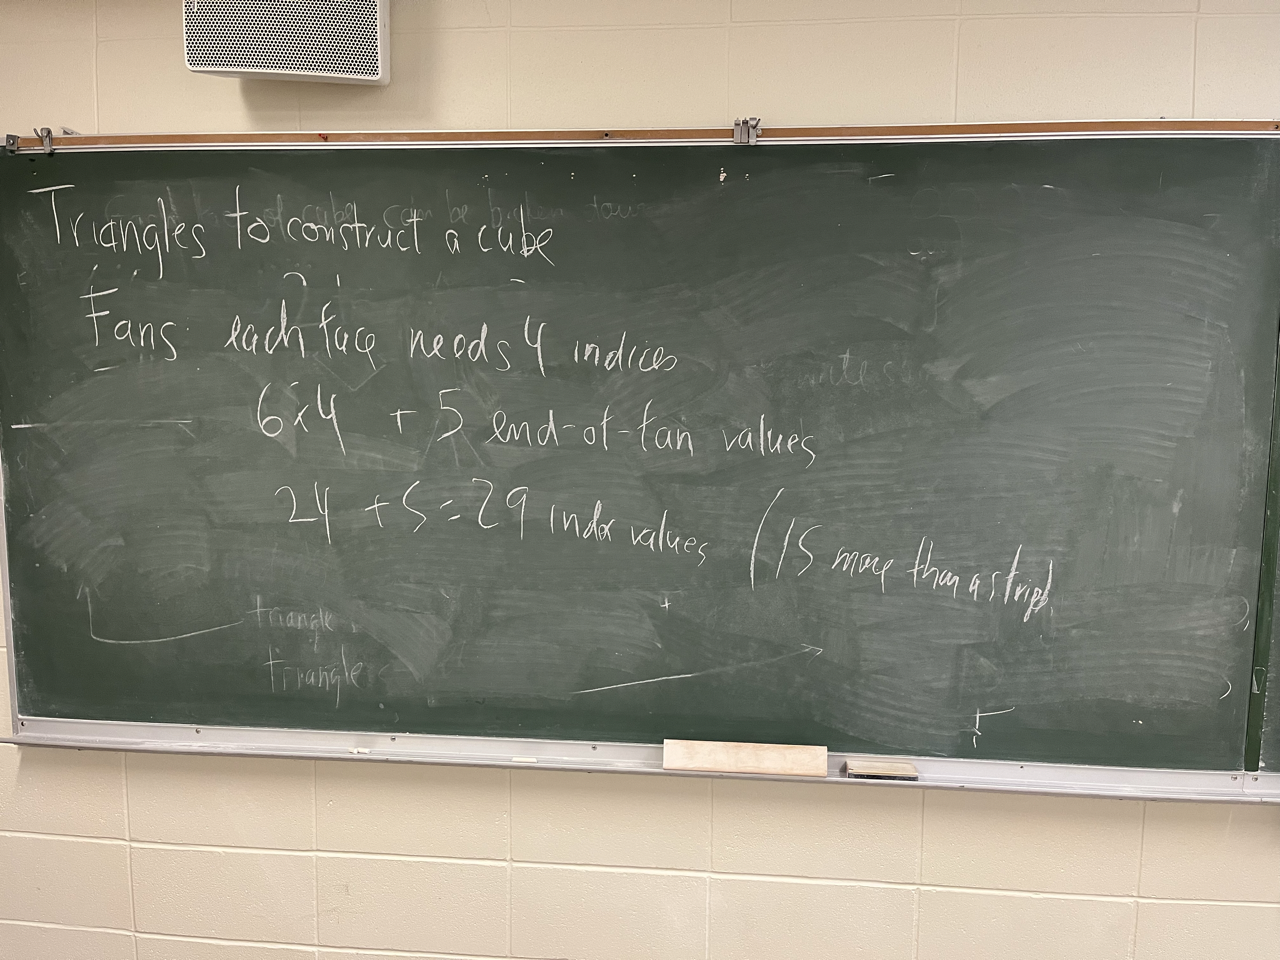 Triangles to construct a cube
Fans: each face needs 4 indices
6x4 + 5 end-of-fan values
24 + 5 = 29 index values (15 more than a strip)
triangle
triangle